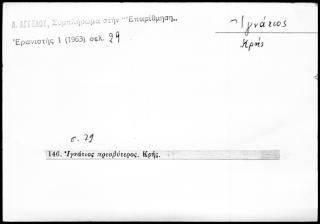 Α. ΑΓΓΕΛΟΥ, Συμπλήρωμα στὴν "Ἐπαρίθμηση„
Ἐρανιστὴς 1 (1963) σελ. 29
Ἰγνάτιος
Κρής
σ. 29
146. Ἰγνάτιος πρεσβύτερος. Κρής.